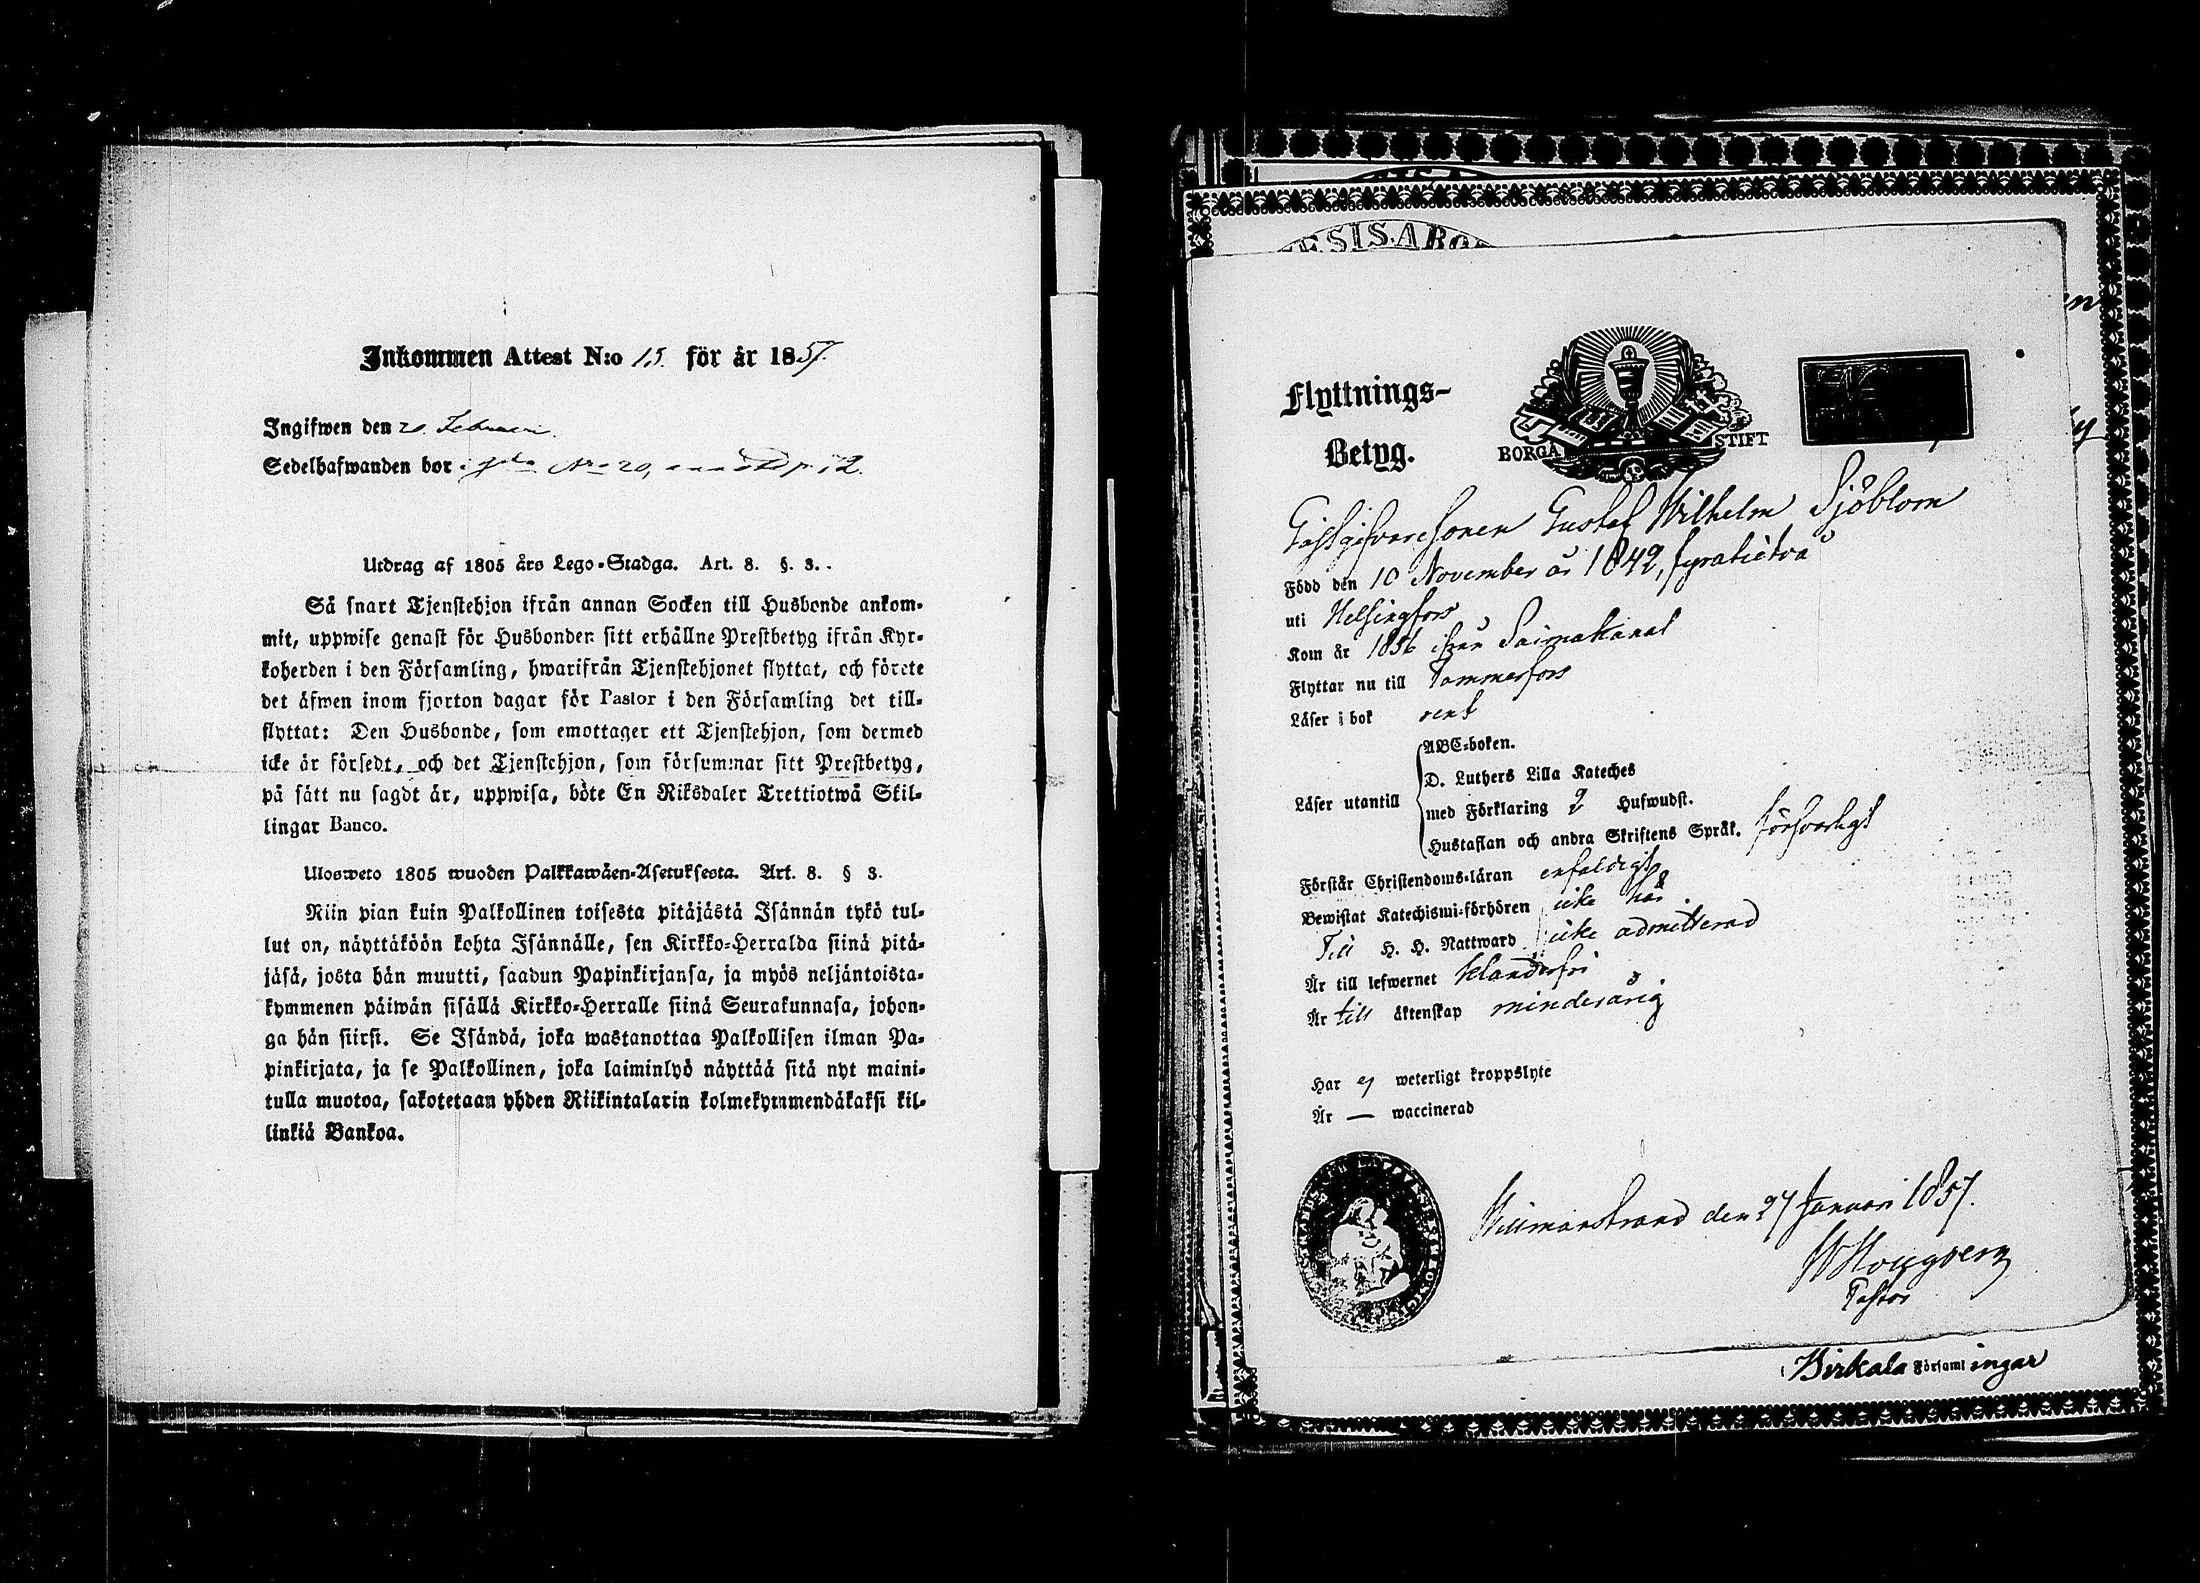 Inkommen Attest N:o 15. för år 1857.
Ingifwen den 20. Februari.
Sedelhafwanden bor
Utdrag af 1805 års Lego-Stadga. Art. 8. §. 3.
Så snart Tjenstehjon ifrån annan Socken till Husbonde ankom-
mit, uppwise genast för Husbonden sitt erhållne Prestbetyg ifrån Kyr-
koherden i den Församling, hwarifrån Tjenstehjonet flyttat, och förete
det äfwen inom fjorton dagar för Pastor i den Församling det till-
flyttat: Den Husbonde, som emottager ett Tjenstehjon, som dermed
icke är försedt, och det Tjenstehjon, som försummar sitt Prestbetyg,
på sätt nu sagdt är, uppwisa, böte En Riksdaler Trettiotwå Skil-
lingar Banco.
Ulosweto 1805 wuoden Palkkawäen-Asetuksesta. Art. 8. § 3.
Niin pian kuin Palkollinen toisesta pitäjästä Isännän tykö tul-
lut on, näyttäköön kohta Isännälle, sen Kirkko-Herralda siinä pitä-
jäsä, josta hän muutti, saadun Papinkirjansa, ja myös neljäntoista-
kymmenen päiwän sisällä Kirkko-Herralle siinä Seurakunnasa, johon-
ga hän siirst. Se Isändä, joka wastanottaa Palkollisen ilman Pa-
pinkirjata, ja se Palkollinen, joka laiminlyö näyttää sitä nyt maini-
tulla muotoa, sakotetaan yhden Riikintalarin kolmekymmendäkaksi kil-
linkiä Bankoa.
Flyttnings-
Betyg.
BORGÅ STIFT
Gästgifvaresonen Gustaf Wilhelm Sjöblom
Född den 10 November år 1842, fyratiotvå
uti Helsingfors
Kom år 1856 ifrån Saima Kanal
Flyttar nu till Tammerfors
Läser i bok rent
Läser utantill
ABC-boken.
D. Luthers Lilla Kateches
med Förklaring 2 Hufwudst.
Hustaflan och andra Skriftens Språk. försvarligt
Förstår Christendoms-läran enfaldigt
Bewistat Katechismi-förhören icke här
Till H. H. Nattward icke admitterad
Är till lefwernet klanderfri
Är till äktenskap minderårig
Har ej weterligt kroppslyte
Är — waccinerad
Willmanstrand den 27 Januari 1857.
Pastor
Birkala Församlingar